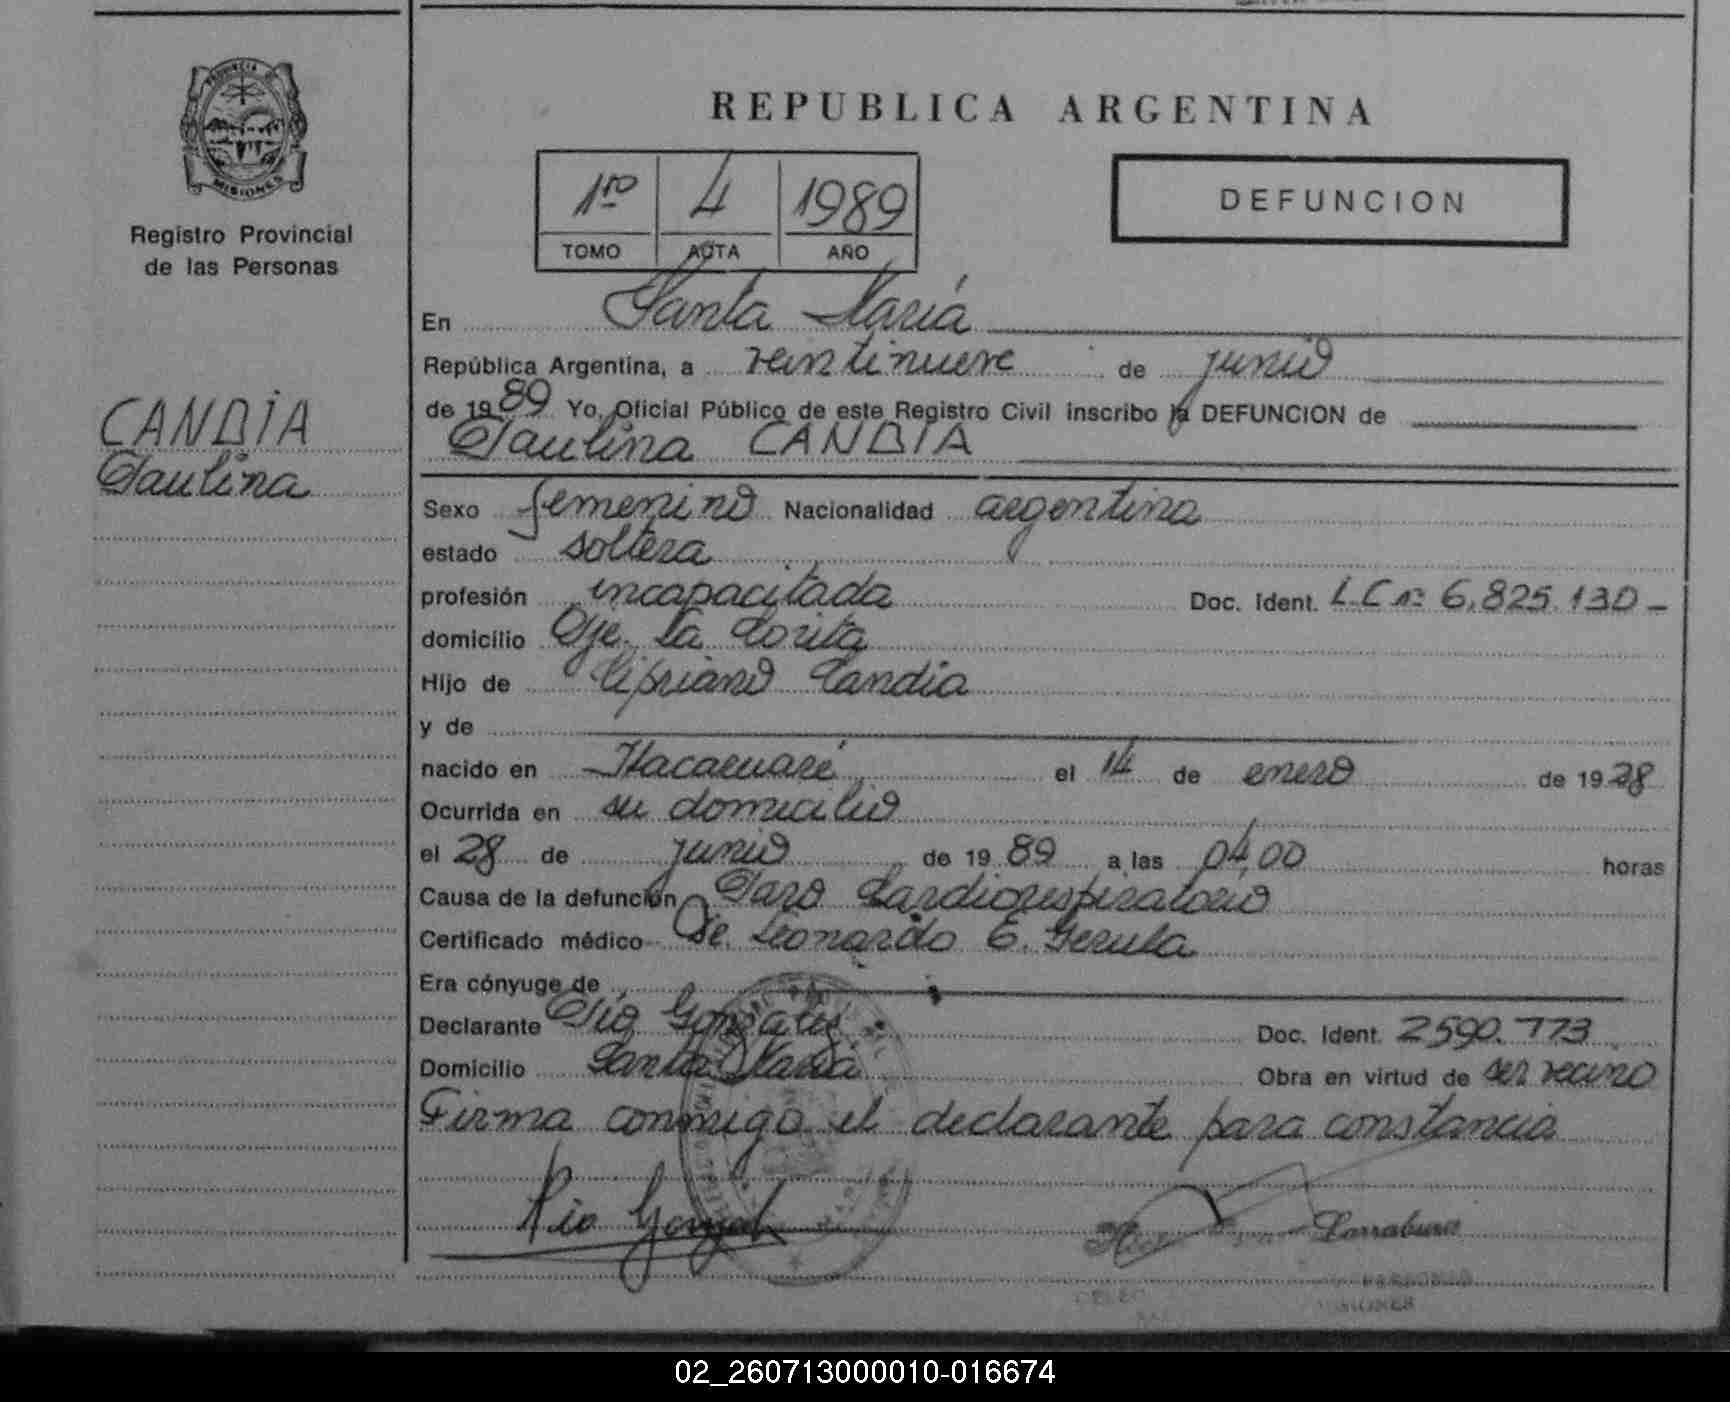 PROVINCIA DE
MISIONES
Registro Provincial
de las Personas
CANDIA
Paulina
REPUBLICA ARGENTINA
1ro 4 1989
TOMO ACTA AÑO
DEFUNCION
En Santa María
República Argentina, a veintinueve de junio
de 1989 Yo, Oficial Público de este Registro Civil inscribo la DEFUNCION de
Paulina CANDIA
Sexo femenino Nacionalidad argentina
estado soltera
profesión incapacitada Doc. Ident. L.C nº 6.825.130-
domicilio Pje. La Corita
Hijo de Cipriano Candia
y de
nacido en Itacaruaré el 14 de enero de 1928
Ocurrida en su domicilio
el 28 de junio de 1989 a las 04,00 horas
Causa de la defunción Paro Cardiorespiratorio
Certificado médico Dr. Leonardo E. Gerula
Era cónyuge de
Declarante Pío Gonzalez Doc. Ident. 2590.773
Domicilio Santa María Obra en virtud de ser vecino
Firma conmigo el declarante para constancia
Pio Gonzalez Larraburu
02_260713000010-016674